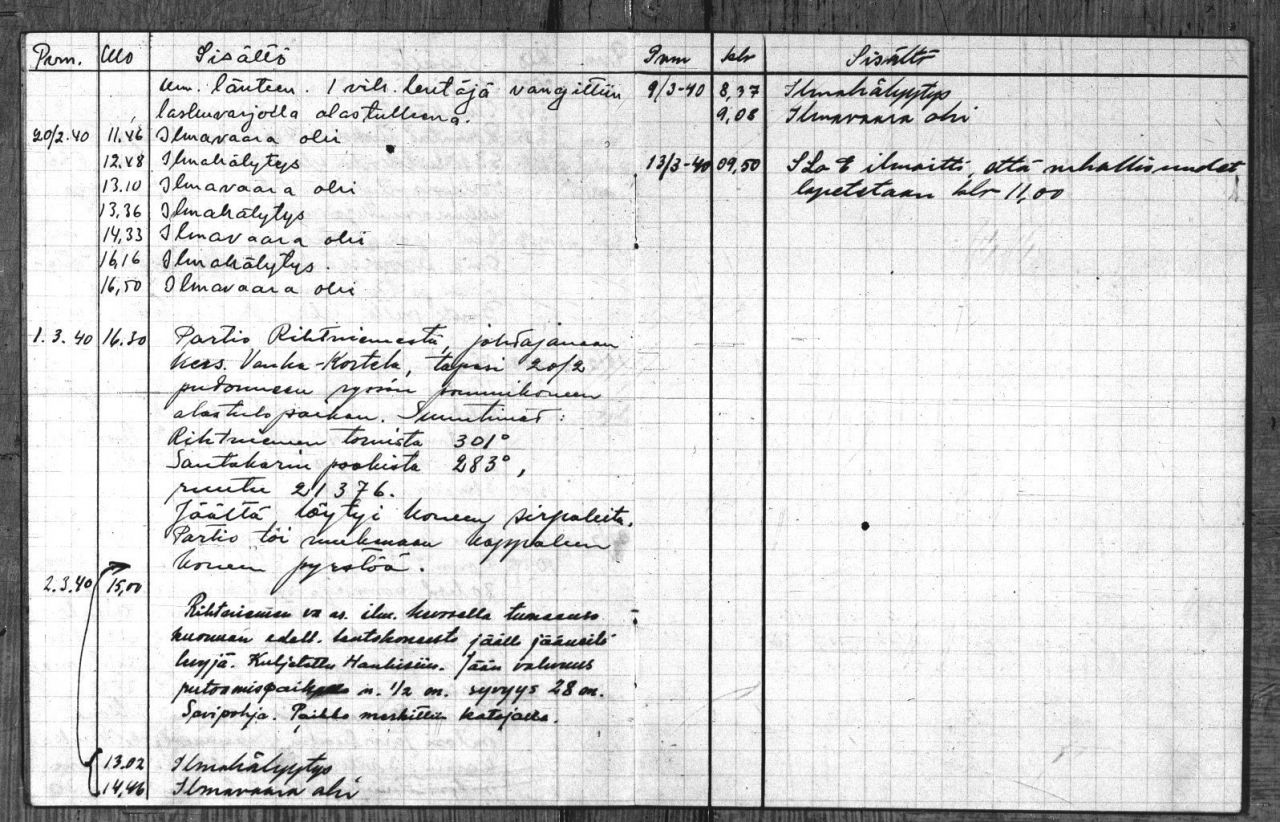 Pvm. Klo Sisältö
km. länteen. 1 vih. lentäjä vangittiin
laskuvarjolla alastulleena.
20/2.40 11.46 Ilmavaara ohi
12.48 Ilmahälytys
13.10 Ilmavaara ohi
13,36 Ilmahälytys
14,33 Ilmavaara ohi
16,16 Ilmahälytys.
16,50 Ilmavaara ohi
1.3.40 16.30 Partio Rihtniemestä, johtajanaan
kers. Vanha-Kortela, tapasi 20/2
pudonneen ryssän pommikoneen
alastulopaikan. Suuntimat:
Rihtniemen tornista 301°
Santakarin pookista 283°,
ruutu 21376.
Jäältä löytyi koneen sirpaleita.
Partio toi mukanaan kappaleen
koneen pyrstöä.
2.3.40 15,00
Rihtniemen va as. ilm.
kuorman edell. lentokoneesta jäälle jääneitä
Kuljetettu Jään vahvuus
putoamispaikalla n. 1/2 m. syvyys 28 m.
Savipohja. Paikka merkittiin katajalla.
13.02 Ilmahälytys
14,46 Ilmavaara ohi
Pvm klo Sisältö
9/3-40 8,37 Ilmahälyytys
9,08 Ilmavaara ohi
13/3-40 09,50 ilmoitti, että vihollisuudet
lopetetaan klo 11,00